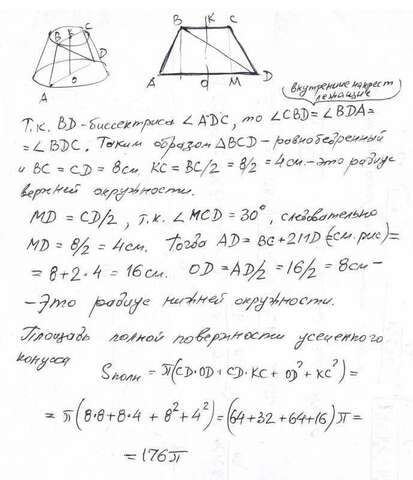 B K C
D
A O
B K C
A O M D
внутренние накрест
лежащие
Т.к. BD-биссектриса ∠ADC, то ∠CBD=∠BDA=
=∠BDC. Таким образом ΔBCD-равнобедренный
и BC=CD=8см. KC=BC/2=8/2=4см-это радиус
верхней окружности.
MD = CD/2, т.к. ∠MCD=30°, следовательно
MD=8/2=4см. Тогда AD=BC+2MD (см. рис)=
=8+2·4=16см. OD=AD/2=16/2=8см-
-Это радиус нижней окружности.
Площадь полной поверхности усеченного
конуса
Sполн=π(CD·OD+CD·KC+OD²+KC²)=
=π(8·8+8·4+8²+4²)=(64+32+64+16)π=
=176π